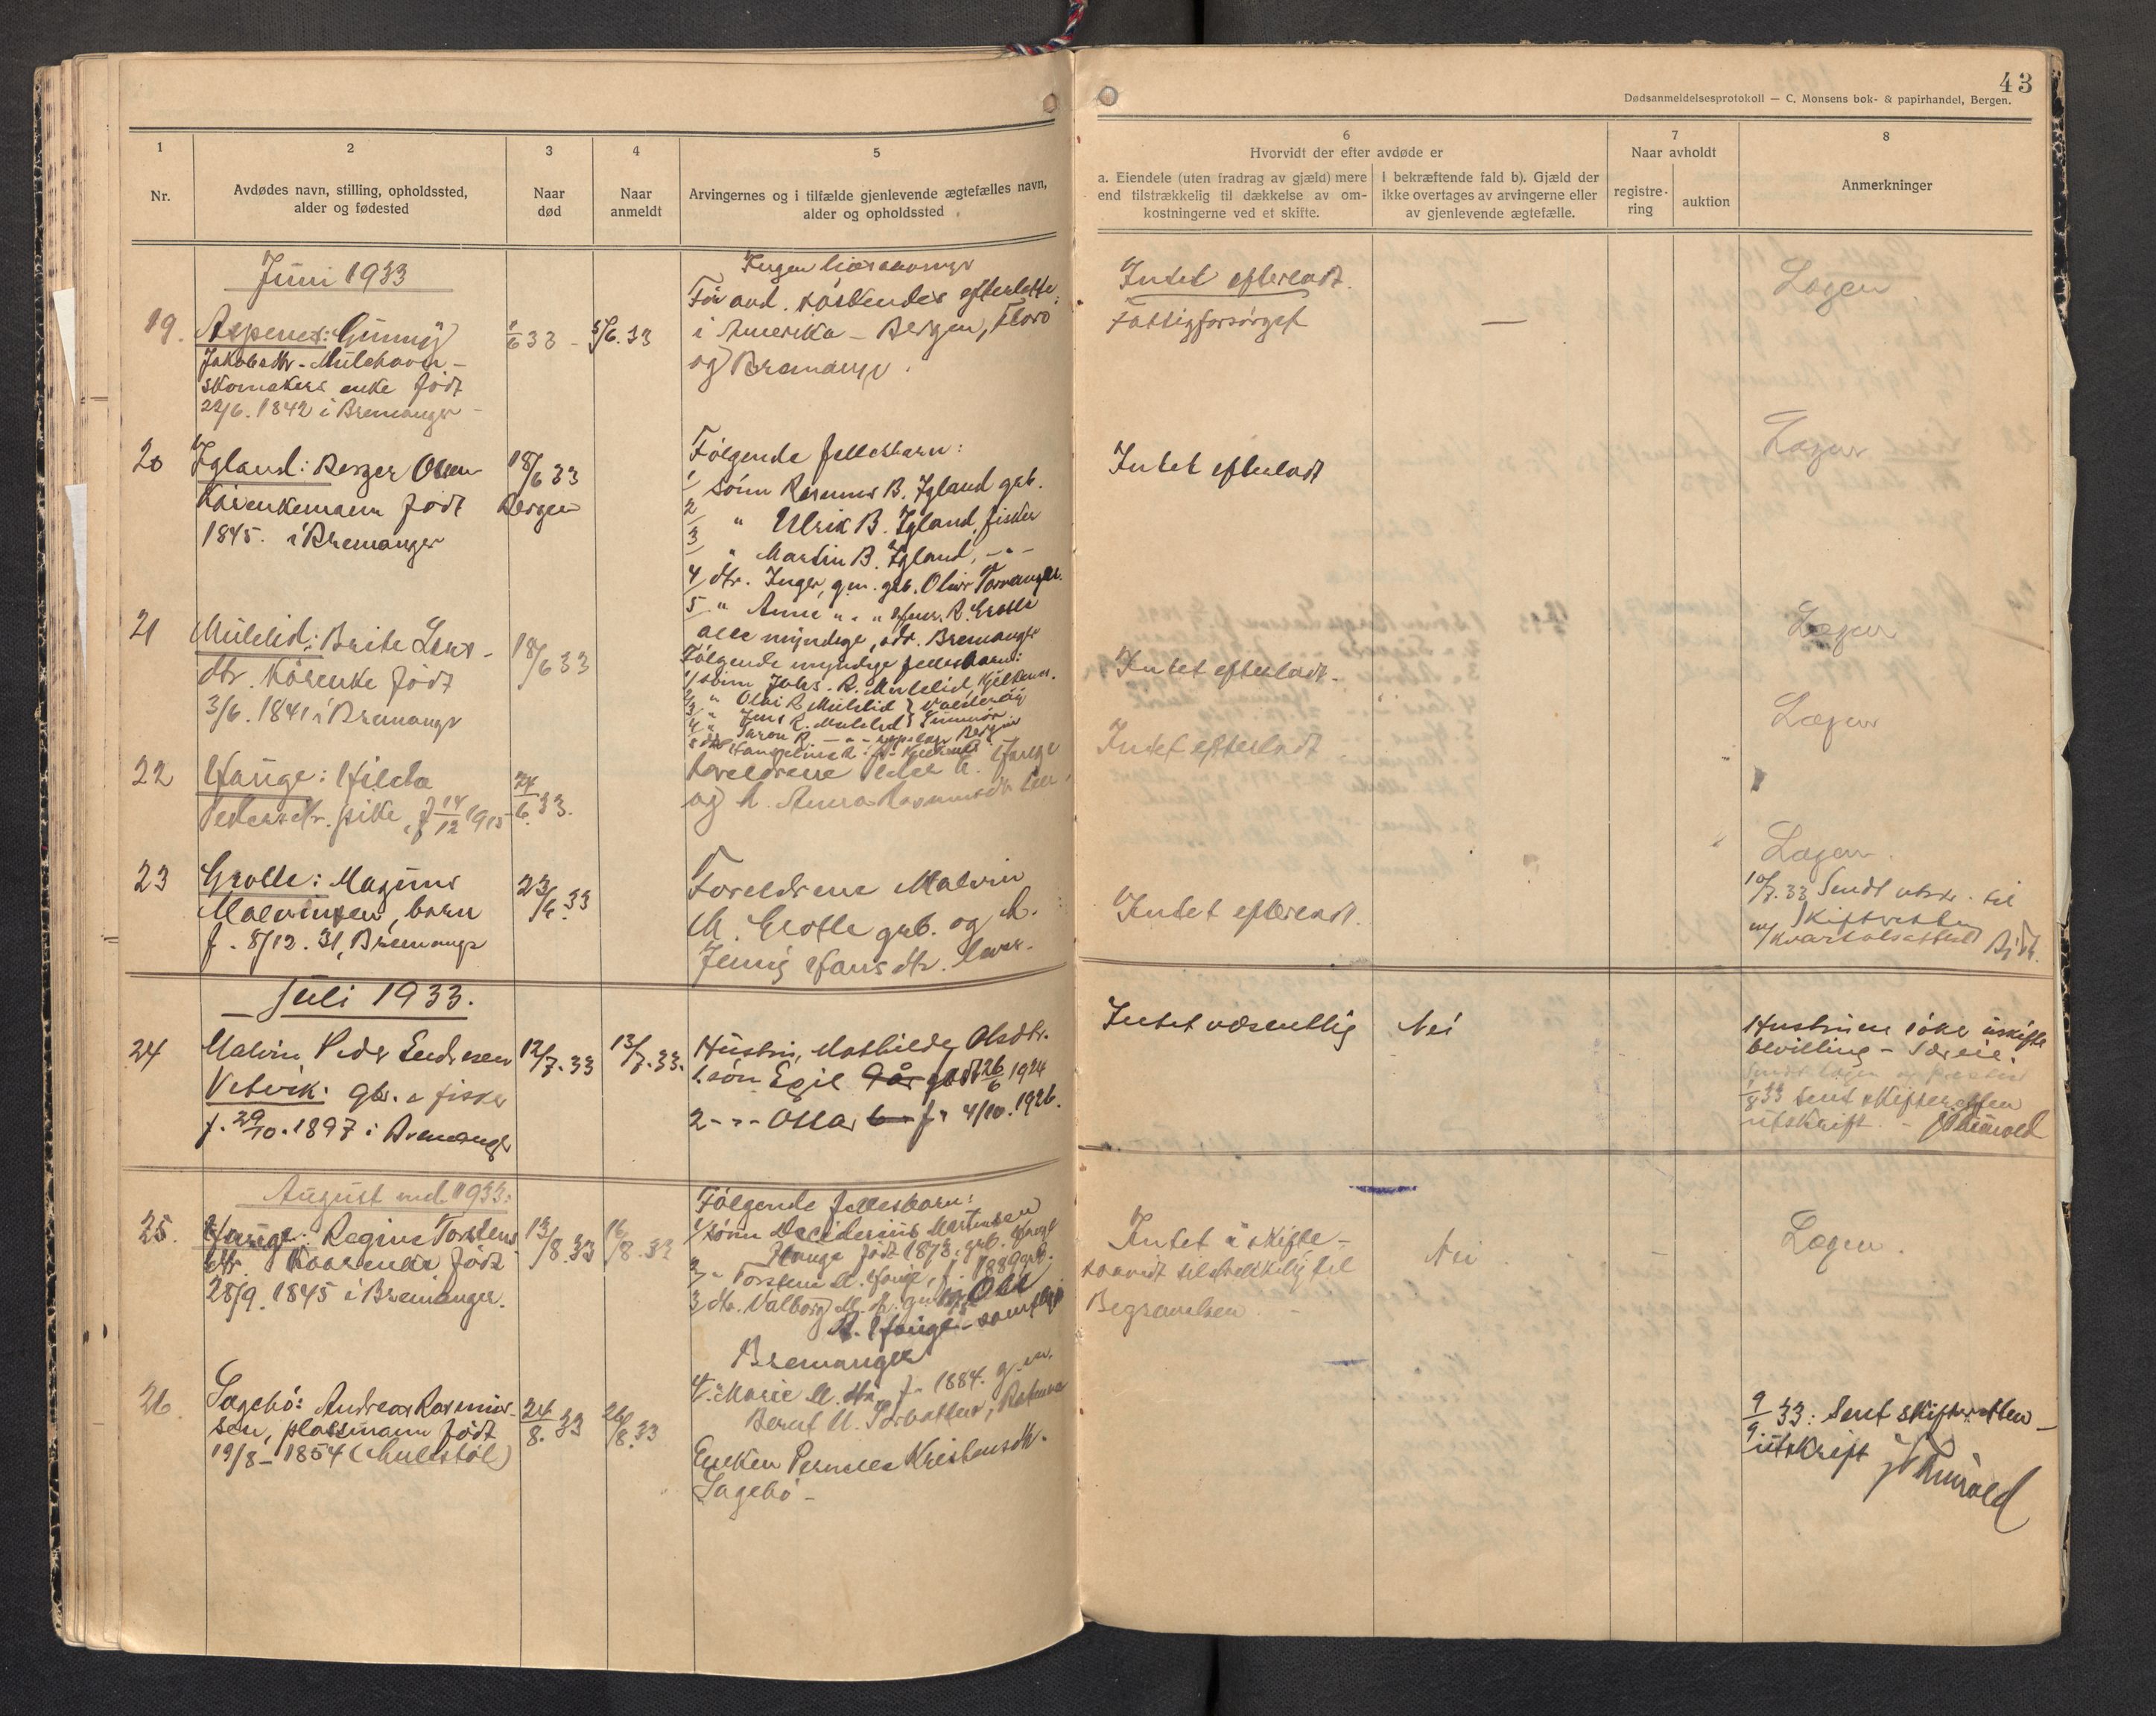 43
Dødsanmeldelsesprotokoll — C. Monsens bok- & papirhandel, Bergen.
1
Nr.
2
Avdødes navn, stilling, opholdssted,
alder og fødested
3
Naar
død
4
Naar
anmeldt
5
Arvingernes og i tilfælde gjenlevende ægtefælles navn,
alder og opholdssted
6
Hvorvidt der efter avdøde er
a. Eiendele (uten fradrag av gjæld) mere
end tilstrækkelig til dækkelse av om-
kostningerne ved et skifte.
I bekræftende fald b). Gjæld der
ikke overtages av arvingerne eller
av gjenlevende ægtefælle.
7
Naar avholdt
registre-
ring
auktion
8
Anmerkninger
Juni 1933
19. Aspenes: Gunnij
Jakobsdtr. - Mulehavn -
skomakers enke født
22/6. 1842 i Bremanger -
1/6 33 - 5/6. 33
Ingen livsarvinger
For avd. søskendes efterlatte:
i Amerika - Bergen, Florø
og Bremanger.
Intet efterladt.
Fattigforsørget
—
Lægen
20 Igland: Berger Olsen
Kårenkemann født
1845. i Bremanger
18/6 33
Bergen
Følgende fellesbarn:
1/ sønn Rasmus B. Igland grb.
2/ " Ulrik B. Igland, fisker
3/ " Martin B. Igland, -"-
4/ dtr. Inger, gm. grb. Oliver Torvanger.
5 " Anne " " R. Grotle
alle myndige, adr. Bremanger
Intet efterladt
Lægen
21 Mulelid: Brite Lars-
dtr. Kårenke født
3/6. 1841 i Bremanger
18/6 33
Følgende myndige fellesbarn:
1/ sønn Johs. R. Mulelid
2/ " Olai R. Mulelid
3/ " Jens R. Mulelid
4/ " R. -"- Bergen
Intet efterladt.
Lægen
22 Hauge: Hilda
Pedersdtr. pike, f 14/12 1915
24/6. 33.
Foreldrene Peder A. Hauge
og h. Anna Rasmusdtr
Intet efterladt
Lægen
23 Grotle: Magnus
Malvinsen, barn
f. 8/12. 31, Bremanger
23/6. 33
Foreldrene Malvin
M. Grotle grb. og h.
Jenny Hansdtr.
Intet efterladt.
Lægen.
10/7. 33 Sendt utskr. til
Skifteretten
m/ kvartalsattest
Juli 1933.
24 Malvin Peder Endresen
Vetvik: gbr. & fisker
f. 29/10. 1897 i Bremanger
12/7. 33
13/7. 33.
Hustru, Mathilde Olsdtr.
1. søn Egil 9 år født 26/6 1924
2 - " - Ottar 6 - f. 4/10. 1926.
Intet væsentlig
Nei
Hustruen søker uskifte
bevilling - Særeie.
1/8 33 Sent skifteretten
utskrift. -
August md. 1933:
25. Hauge: Regine Torstens
dtr. Kaarenke født
28/9. 1845 i Bremanger.
13/8. 33
16/8. 33
Følgende fellesbarn:
1/ sønn Desiderius Martinsen
Hauge født 1873, grb. Hauge
2/ " Torstein M. Hauge, f. 1889 grb.
3/ dtr. Valborg M. h. gm. Ole
A. Hauge - samtlige
Bremanger
4. " Marie M. dtr. f. 1884. gm.
Bernt M.
Intet å skifte -
saavidt tilstrekkelig til
Begravelsen. -
Nei
Lægen.
26. Sagebø: Andreas Rasmus-
sen, plassmann født
19/8 - 1854 (Mulestøl)
24/8. 33
26/8. 33
Enken Pernella Kristensdtr.
Sagebø -
9/9 33: Sent skifteretten -
utskrift